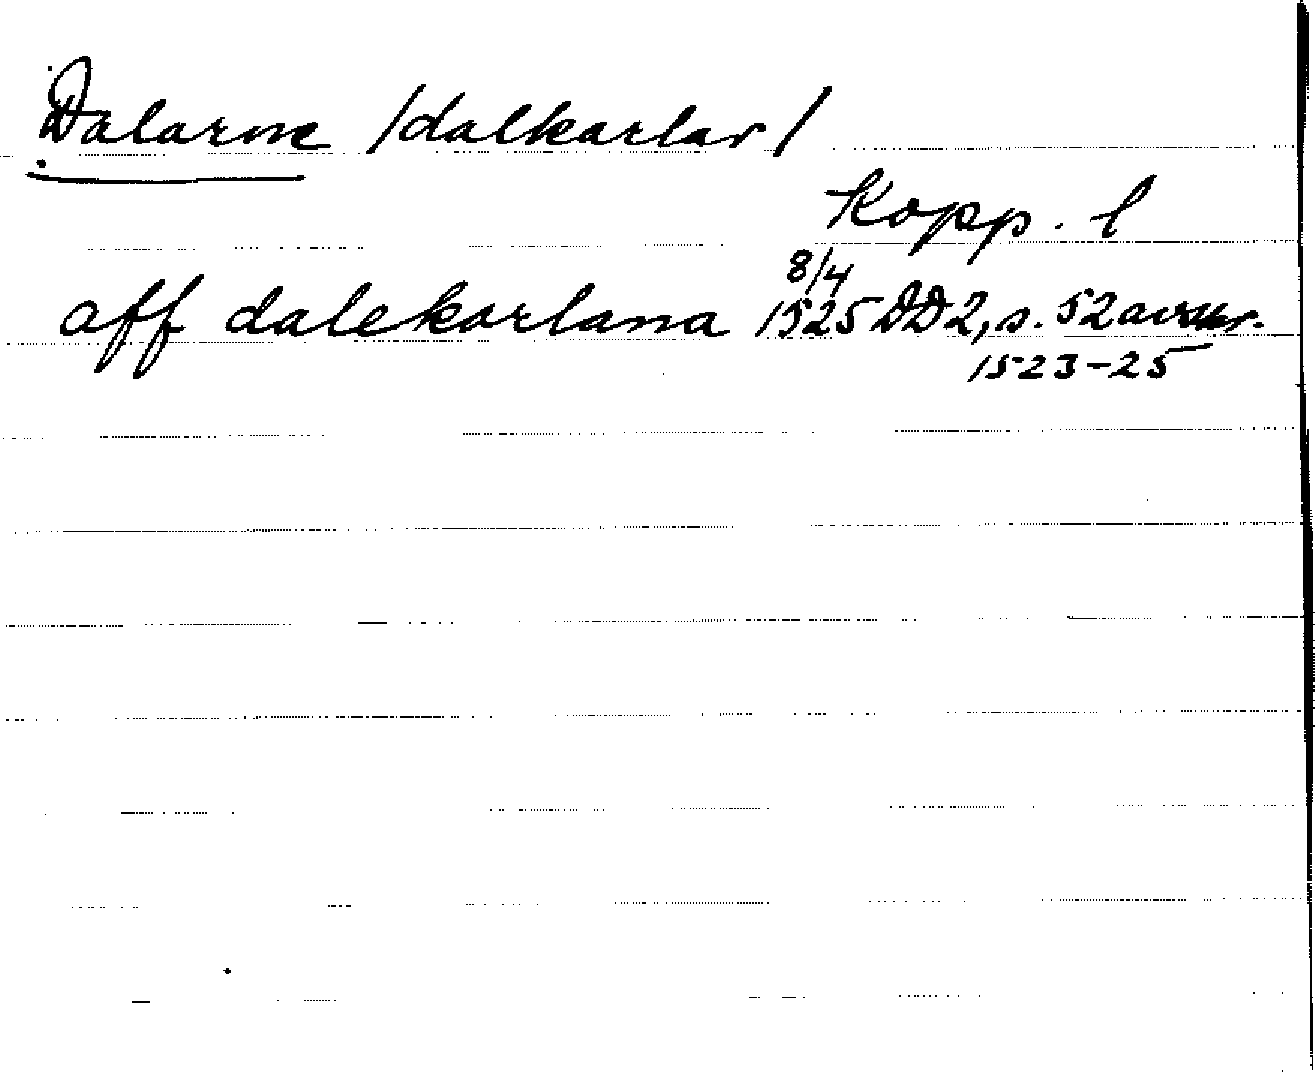 Dalarne /dalkarlar/
Kopp. l
aff dalekarlana 8/4 1525 DD2, s. 52
1523-25